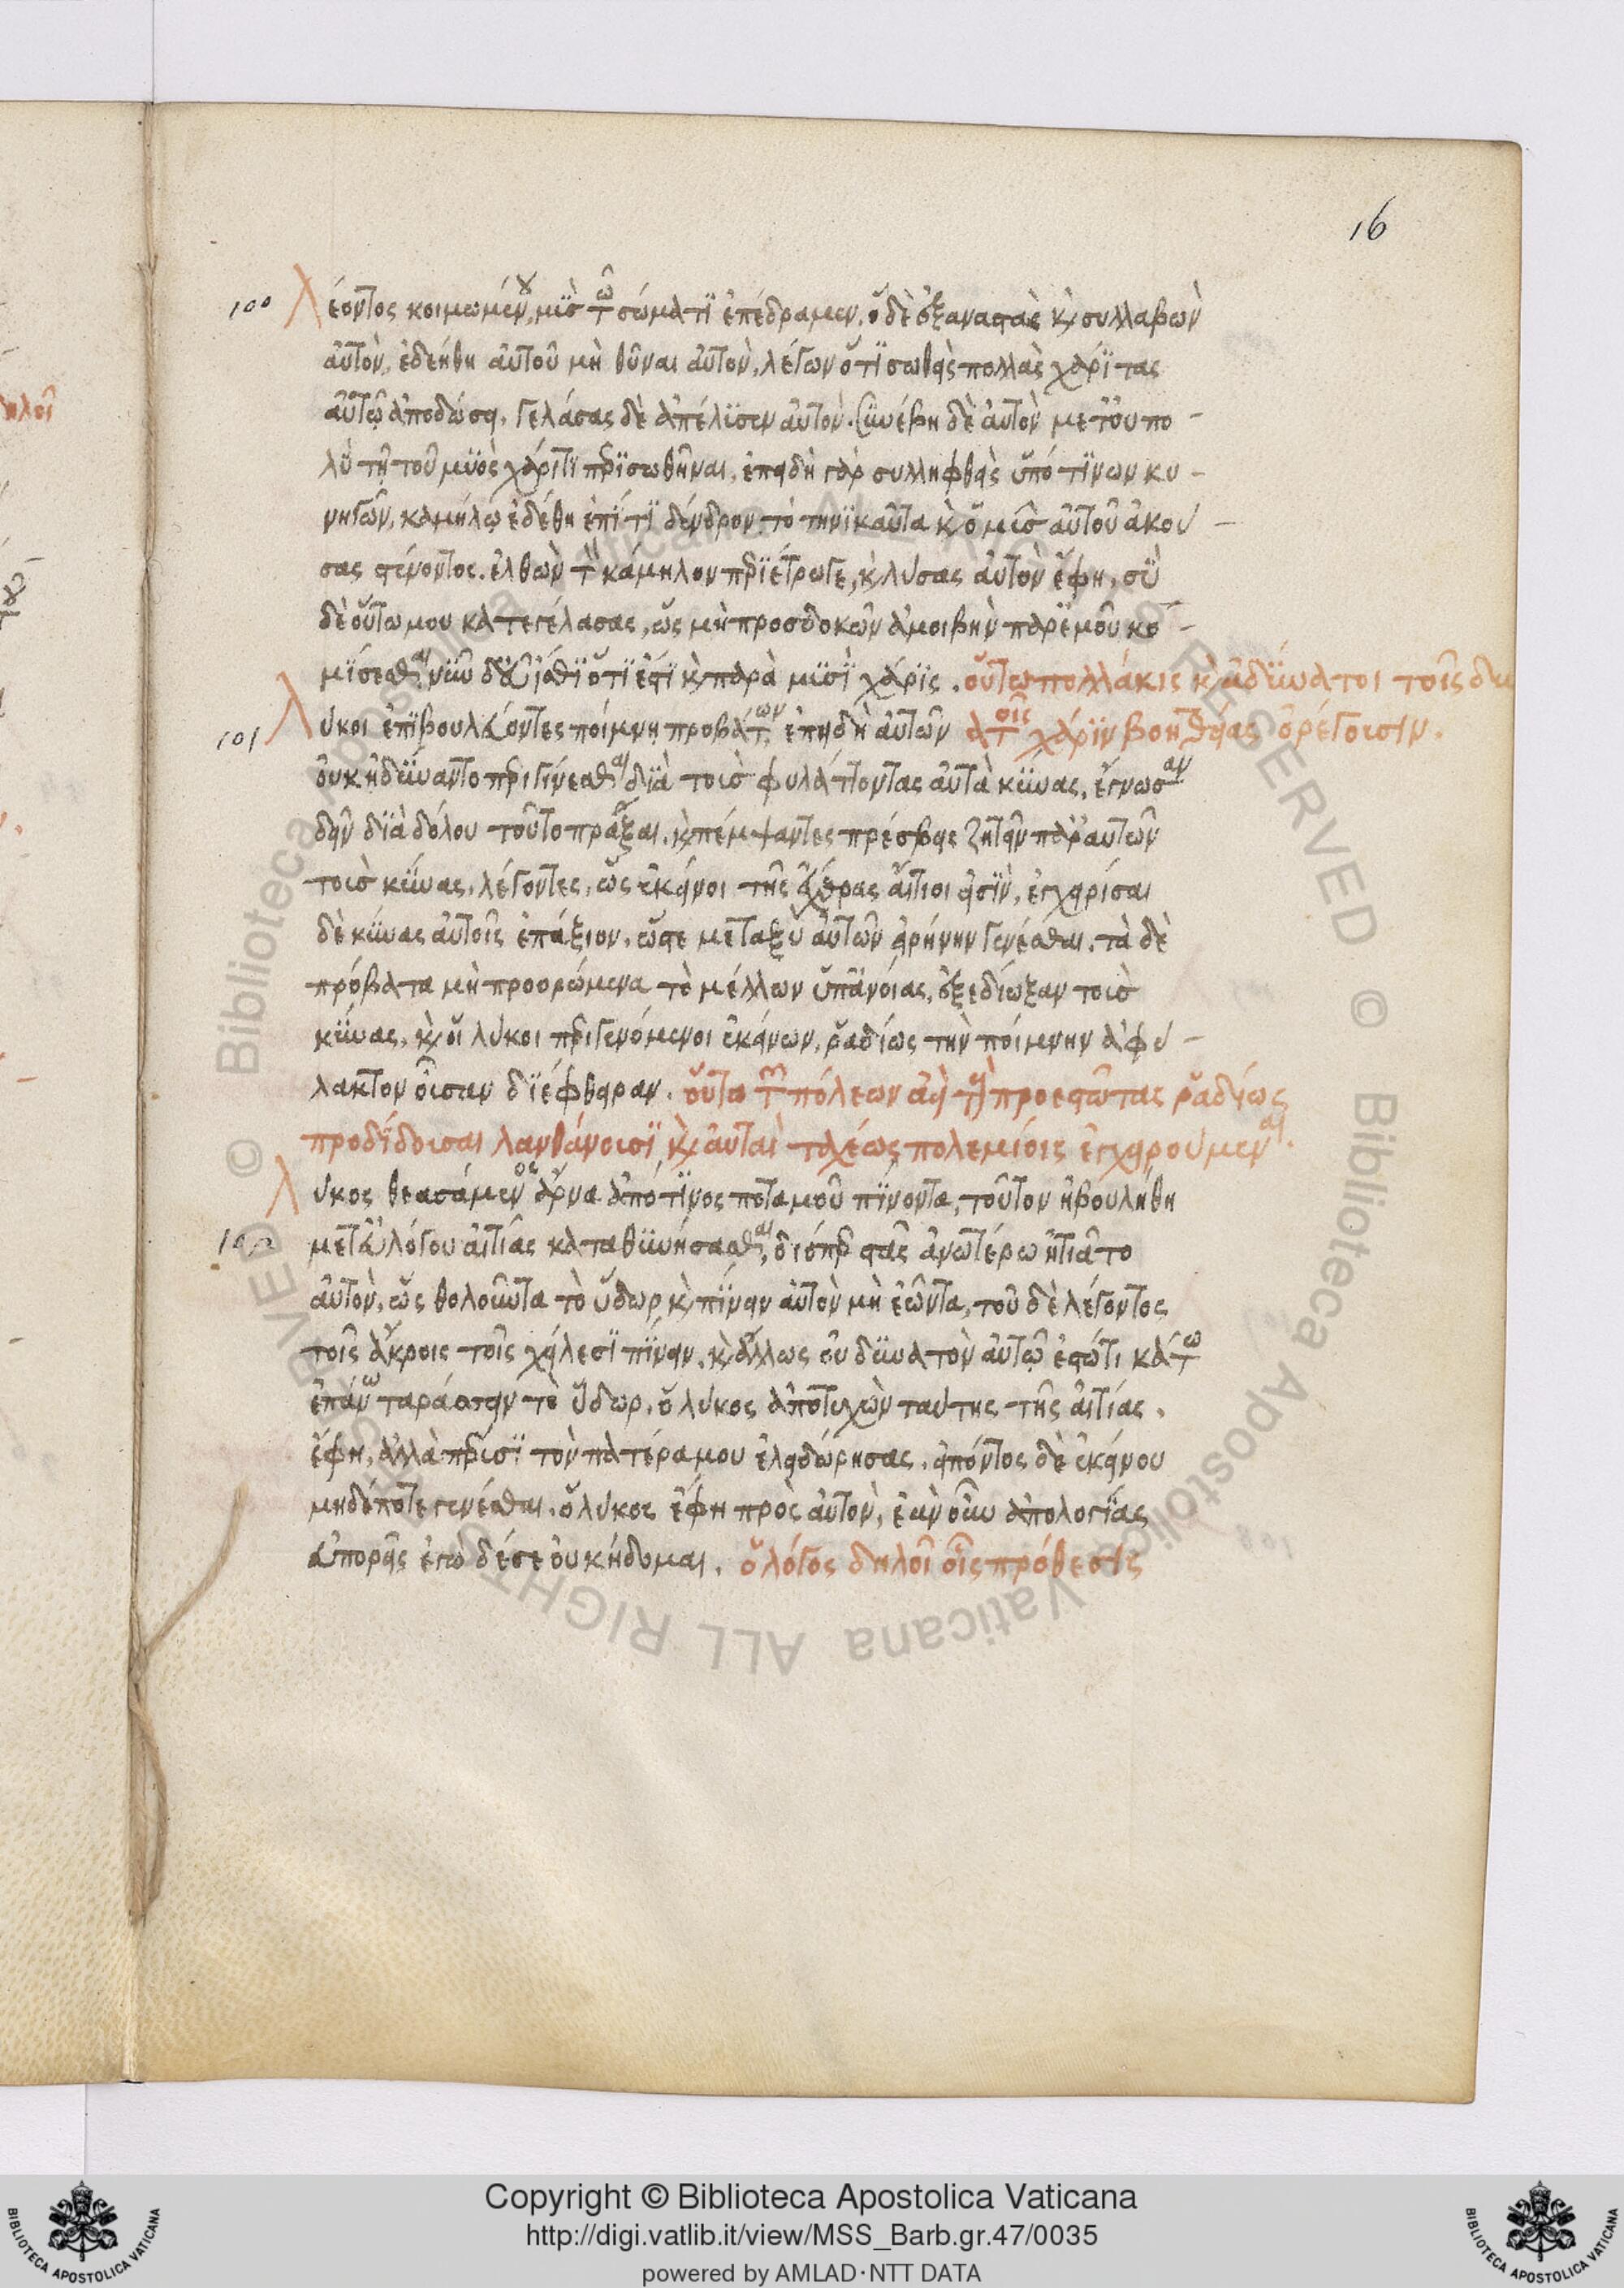 16
100 Λέοντος κοιμωμένου, μῦς τῶ σώματϊ ἐπέδραμεν, ὁ δὲ ἐξαναστὰς καὶ συλλαβὼν
αὐτὸν, ἐδεήθη αὐτοῦ μὴ θῦναι αὐτὸν, λέγων ὅτϊ σωθεὶς πολλὰς χάρϊτας
αὐτῶ ἀποδώσει. γελάσας δὲ ἀπέλϋσεν αὐτὸν. συνέβη δὲ αὐτὸν μετ' οὐ πο-
λὺ τῆ τοῦ μϋὸς χάριτϊ περϊσωθῆναι, ἐπειδὴ γὰρ συλληφθεὶς ὑπό τϊνων κυ-
νηγῶν, καμήλω ἐδέθη ἐπί τϊ δένδρον τὸ τηνϊκαῦτα καὶ ὁ μῦς αὐτοῦ ἀκού-
σας στένοντος. ἐλθὼν τὴν κάμηλον περϊέτρωγε, καὶ λύσας αὐτὸν ἔφη, σὺ
δὲ οὕτω μου κατεγέλασας, ὡς μὴ προσδοκῶν ἀμοιβὴν παρ' ἐμοῦ κο-
μϊσεσθαι, νῦν δὲ ἴσθϊ ὅτϊ ἐστϊ καὶ παρὰ μϋσὶ χάρϊς. οὕτω πολλάκις καὶ ἀδύνατοι τοῖς δυ
101 Λύκοι ἐπϊβουλεύοντες ποίμνη προβάτων, ἐπηδὴ αὐτῶν ατοῖς χάρϊν βοηθείας ὀρέγουσιν.
οὐκ ἠδύναντο περιγίνεσθαι δϊὰ τοὺς φυλάττοντας αὐτὰ κύνας, ἔγνωσαν
δεῖν δϊὰ δόλου τοῦτο πρᾶξαι. καὶ πέμψαντες πρέσβεις ζητεῖν παρ' αὐτῶν
τοὺς κύνας, λέγοντες, ὡς ἐκεῖνοι τῆς ἔχθρας αἴτιοι εἰσῒν, ἐγχειρίσαι
δὲ κύνας αὐτοῖς ἐπάξιον, ὥστε μεταξὺ αὐτῶν εἰρήνην γενέσθαι. τὰ δὲ
πρόβατα μὴ προορώμενα τὸ μέλλων ὑπ' ἀνοίας, ἐξεδίωξαν τοὺς
κύνας, καὶ οἱ λύκοι περιγενόμενοι ἐκείνων, ῥαδίως τὴν ποίμνην ἀφύ-
λακτον οὖσαν δϊέφθειραν. οὕτω τῶν πόλεων αἱ τοὺς προεστῶτας ῥαδίως
προδίδουσαι λανθάνουσϊ καὶ αὐταὶ ταχέως πολεμίοις ἐγχειρούμεναι.
Λύκος θεασάμενος ἄρνα ἀπό τϊνος ποταμοῦ πϊνοντα, τοῦτον ἠβουλήθη
102 μετ' εὐλόγου αἰτίας καταθϋνήσασθαι, διόπερ στὰς ἀνωτέρω ἠτιᾶτο
αὐτὸν, ὡς θολοῦντα τὸ ὕδωρ καὶ πϊνειν αὐτὸν μὴ ἐῶντα, τοῦ δὲ λέγοντος
τοῖς ἄκροις τοῖς χείλεσϊ πϊνειν, καὶ ἄλλως οὐ δύνατὸν αὐτῶ ἑστῶτι κάτω
ἐπάνω ταράσσειν τὸ ὕδωρ, ὁ λύκος ἀποτυχὼν ταύτης τῆς αἰτίας,
ἔφη, ἀλλὰ πέρυσϊ τὸν πατέρα μου ἐλοιδώρησας. εἰπόντος δὲ ἐκείνου
μηδέποτε γενέσθαι. ὁ λύκος ἔφη πρὸς αὐτὸν, ἐὰν οὖν ἀπολογίας
εὐπορῆς ἐγὼ δέ σε οὐκ ἥδομαι. ὁ λόγος δηλοῖ οἷς πρόθεσϊς
Copyright © Biblioteca Apostolica Vaticana
http://digi.vatlib.it/view/MSS_Barb.gr.47/0035
powered by AMLAD·NTT DATA
BIBLIOTECA APOSTOLICA VATICANA
BIBLIOTECA APOSTOLICA VATICANA